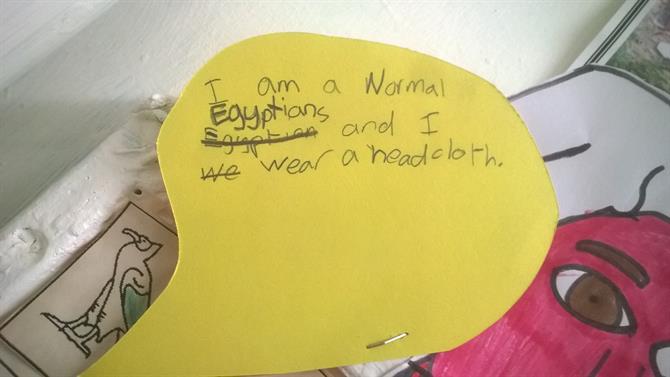 I am a Normal
Egyptians
Egyptian and I
We wear a headcloth.